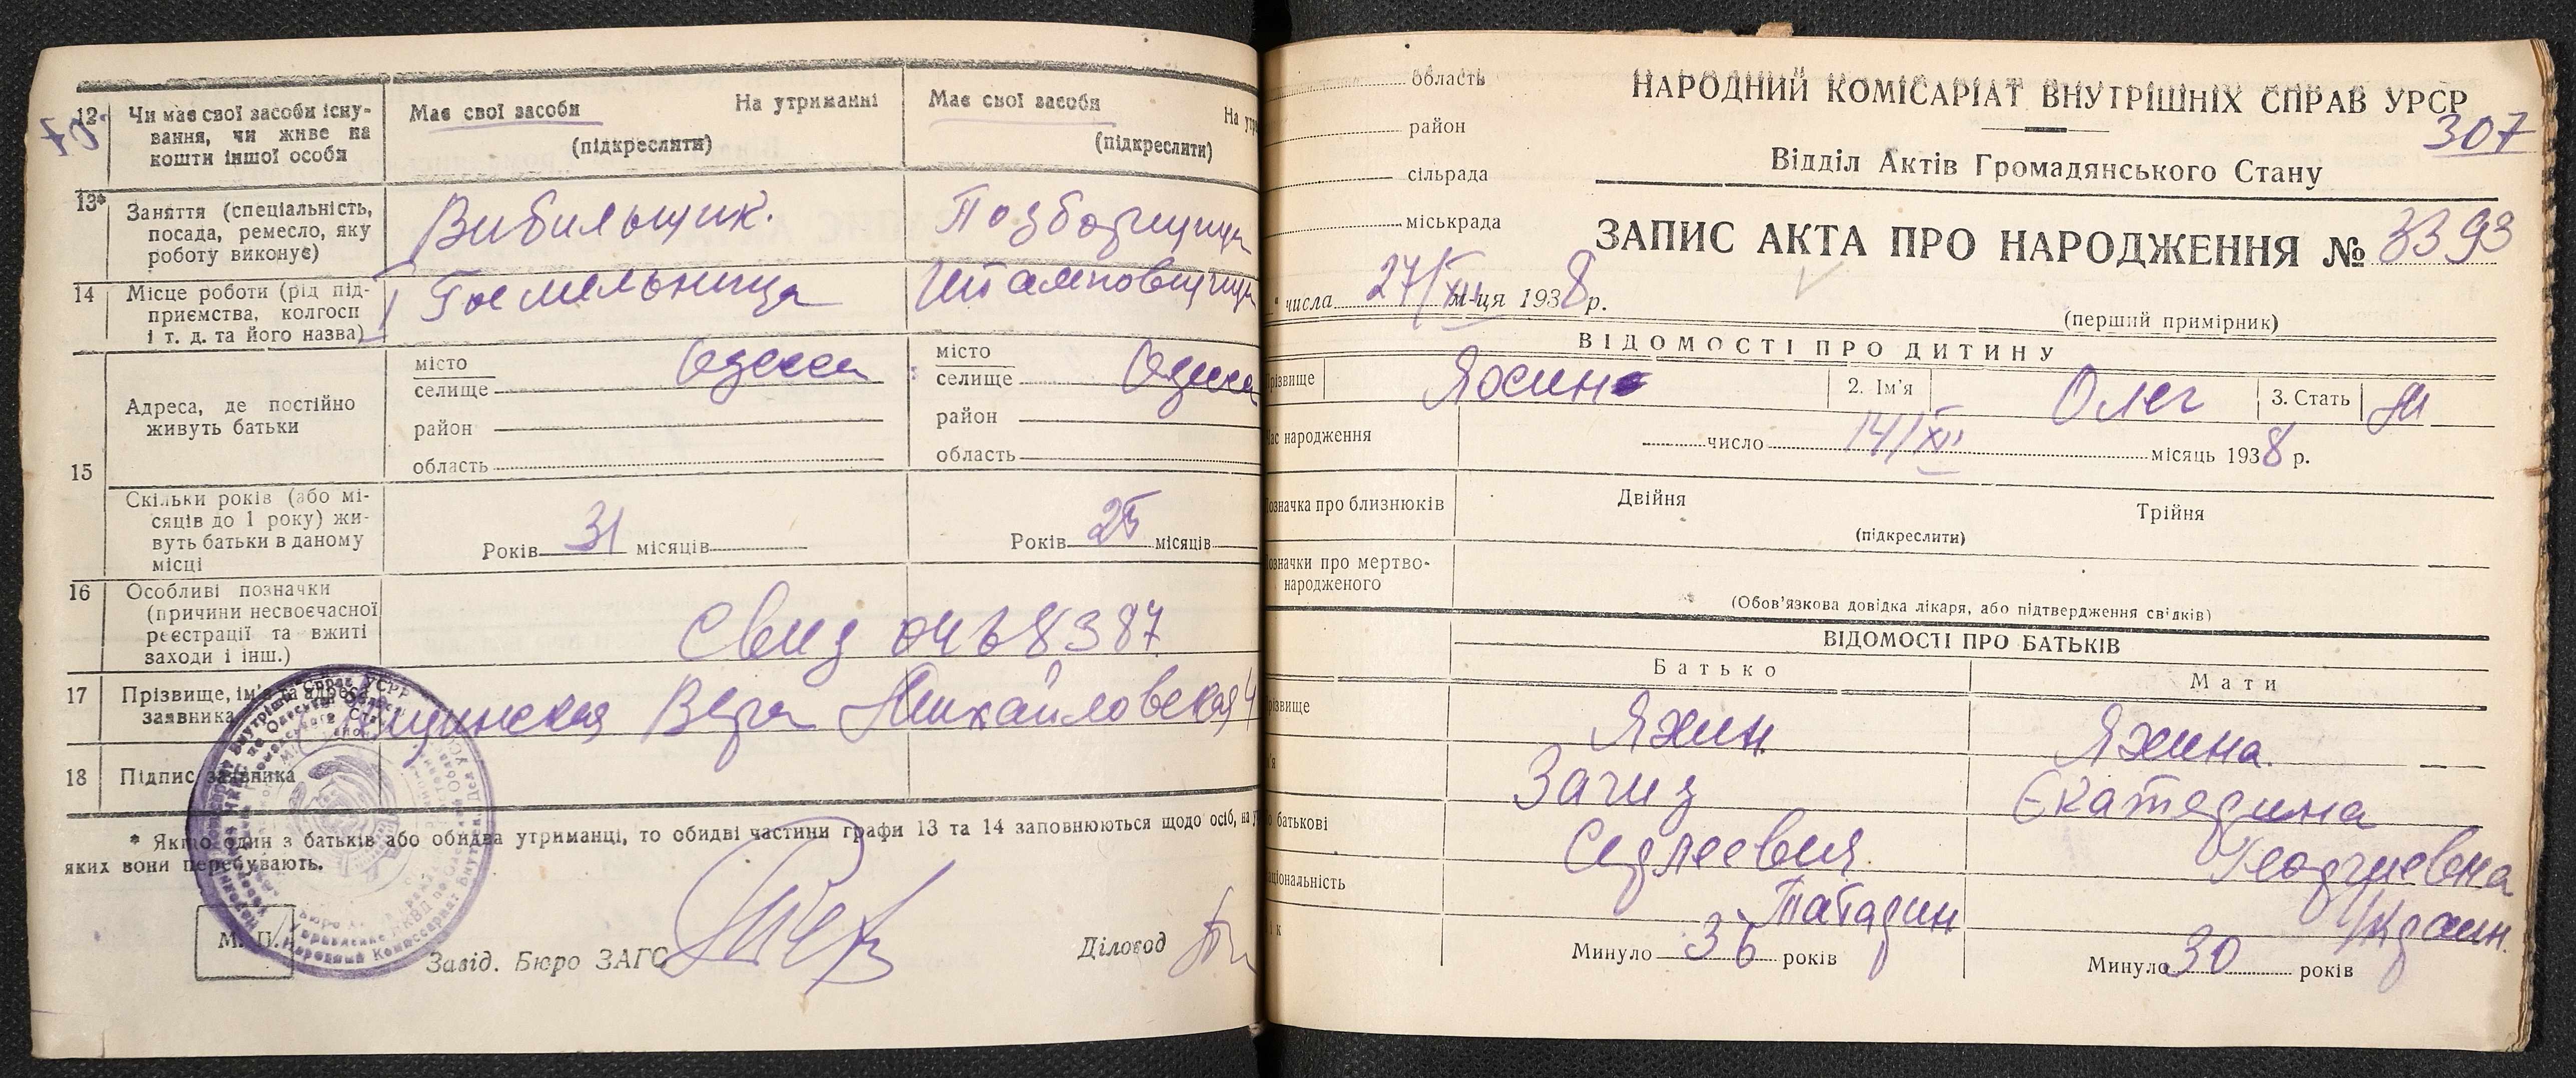 12
Чи має свої засоби існу-
вання, чи живе на
кошти іншої особи
Має свої засоби На утриманні
(підкреслити)
Має свої засоби На утр
(підкреслити)
13*
Заняття (спеціальність,
посада, ремесло, яку
роботу виконує)
14
Місце роботи (рід під-
приємства, колгосп
і т. д. та його назва)
Госмельница
15
Адреса, де постійно
живуть батьки
місто
селище Одесса
район
область
місто
селище Одесса
район
область
Скільки років (або мі-
сяців до 1 року) жи-
вуть батьки в даному
місці
Років 31 місяців
Років 25 місяців
16
Особливі позначки
(причини несвоєчасної
реєстрації та вжиті
заходи і інш.)
Свид
17
Прізвище, ім'я та адреса
заявника
Вера Михайловская 4
18
Підпис заявника
* Якщо один з батьків або обидва утриманці, то обидві частини графи 13 та 14 заповнюються щодо осіб, на у
яких вони перебувають.
М. П.
Завід. Бюро ЗАГС
Діловод
область
район
сільрада
міськрада
НАРОДНИЙ КОМІСАРІАТ ВНУТРІШНІХ СПРАВ УРСР
307
Відділ Актів Громадянського Стану
ЗАПИС АКТА ПРО НАРОДЖЕННЯ № 3393
числа 27/XII м-ця 1938 р.
(перший примірник)
ВІДОМОСТІ ПРО ДИТИНУ
різвище Яхин 2. Ім'я Олег 3. Стать м
ас народження число 14/XII місяць 1938 р.
означка про близнюків Двійня Трійня
(підкреслити)
означки про мертво-
народженого
(Обов'язкова довідка лікаря, або підтвердження свідків)
ВІДОМОСТІ ПРО БАТЬКІВ
Батько Мати
різвище Яхин Яхина
м'я Загид Єкатерина
о батькові Георгиевна
аціональність Татарин Украин.
ік Минуло 36 років Минуло 30 років